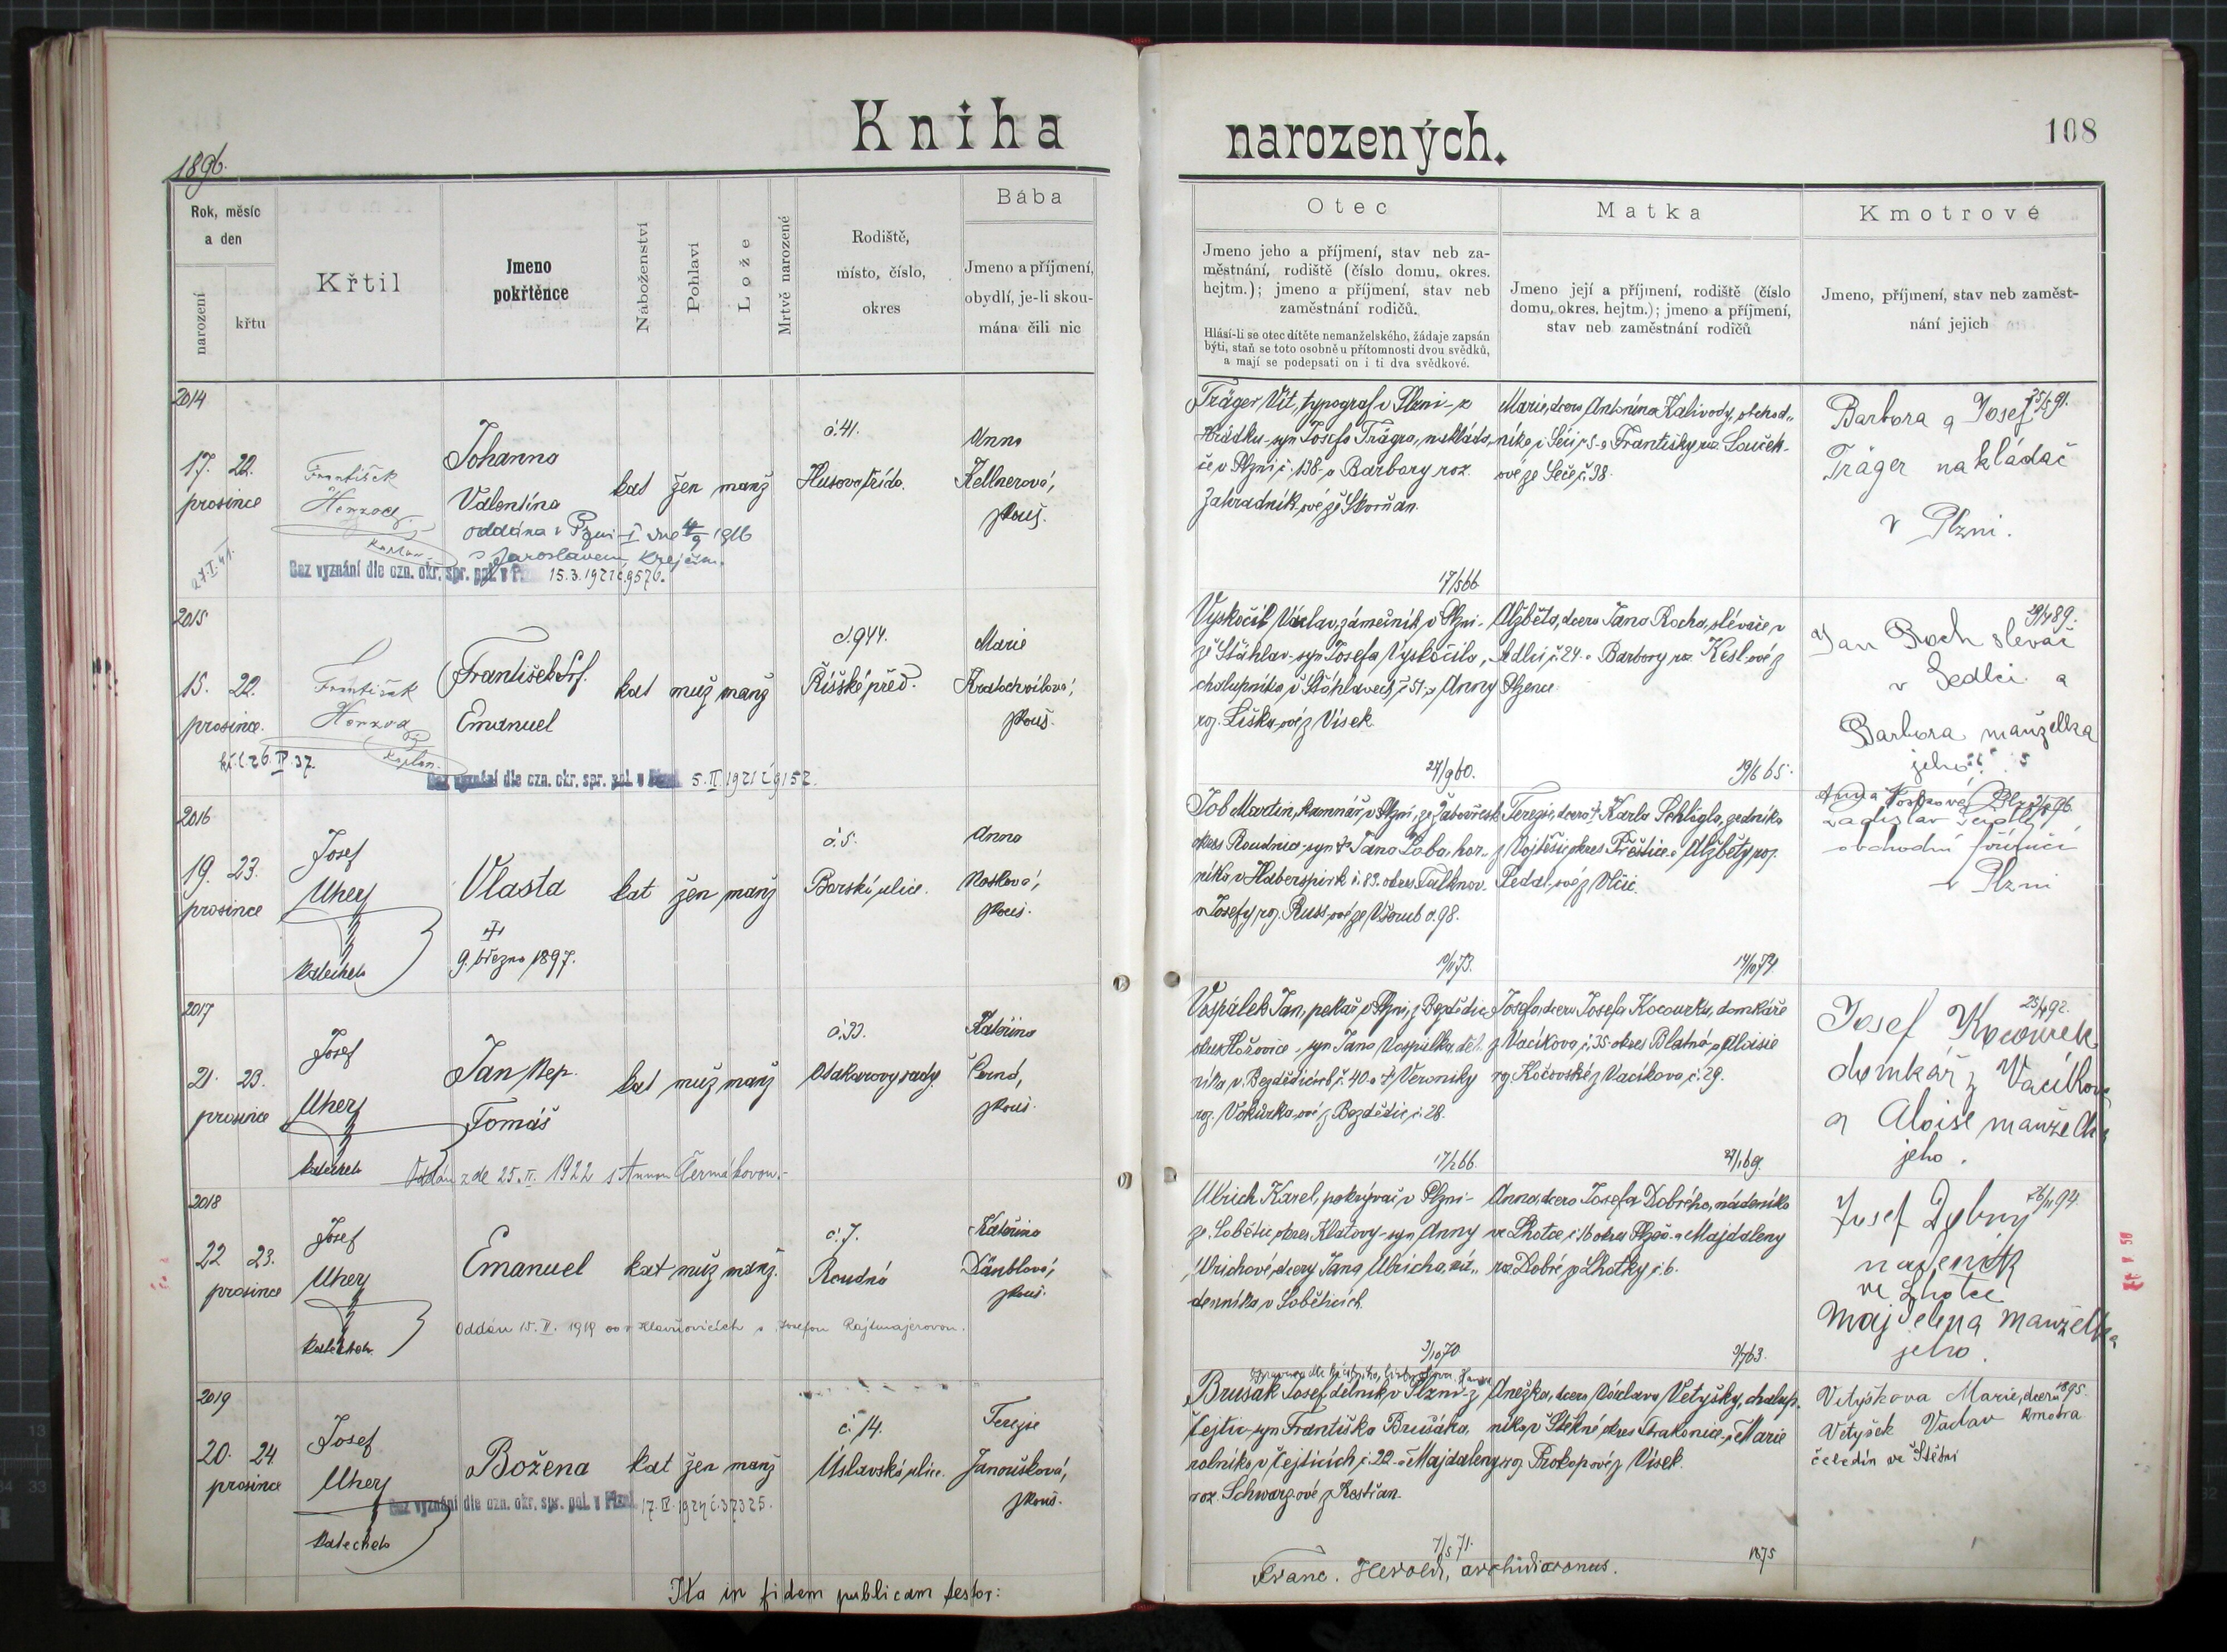 Kniha
narozených.
108
1896.
Rok, měsíc
a den
narození
křtu
Křtil
Jmeno
pokřtěnce
Náboženství
Pohlaví
Lože
Mrtvě narozené
Rodiště,
místo, číslo,
okres
Bába
Jmeno a příjmení,
obydlí, je-li skou-
mána čili nic
Otec
Jmeno jeho a příjmení, stav neb za-
městnání, rodiště (číslo domu, okres.
hejtm.); jmeno a příjmení, stav neb
zaměstnání rodičů.
Hlásí-li se otec dítěte nemanželského, žádaje zapsán
býti, staň se toto osobně u přítomnosti dvou svědků,
a mají se podepsati on i ti dva svědkové.
Matka
Jmeno její a příjmení, rodiště (číslo
domu, okres. hejtm.); jmeno a příjmení,
stav neb zaměstnání rodičů
Kmotrové
Jmeno, příjmení, stav neb zaměst-
nání jejich
2014
17. 22.
prosince
František
Herzog
kaplan
Johanna
Valentina
oddána v Plzni I dne 4/9 1916
s Jaroslavem Krejčím.
Bez vyznání dle ozn. okr. spr. pol. v Plzni 15.3.1921 č 9576.
kat žen manž
č. 41.
Husova třída.
Anna
Kellnerová,
zkouš.
Träger Vít, typograf v Plzni - z
Hrádku - syn Josefa Trägra, nakláda-
če v Plzni č. 138 - a Barbory roz.
Zahradník-ové ze Skvrňan.
17/5 66
Marie, dcera Antonína Kalivody, obchod-
níka v Seči č. 5 - a Františky roz. Louček-
ové ze Seče č. 38.
Barbora a Josef
Träger nakládač
v Plzni.
2015
15. 22.
prosince.
František
Herzog
kaplan.
František Ser.
Emanuel
Bez vyznání dle ozn. okr. spr. pol. v Plzni 5. II 1921 č 9152.
kat muž manž
č. 944.
Říšské před.
Marie
Kratochvilová,
zkouš.
Vyskočil Václav, zámečník v Plzni -
ze Štáhlav - syn Josefa Vyskočila,
chalupníka v Štáhlavech č. 51 - a Anny
roz. Liška-ové z Vísek.
24/9 60.
Alžběta, dcera Jana Rocha, slévače v
Sedlci č. 24 - a Barbory roz. Kesl-ové z
Plzence
19/6 65.
29/4 89.
Jan Roch slevač
v Sedlci a
Barbora manželka
jeho
2016
19. 23.
prosince
Josef
Uher
katecheta
Vlasta
9. března 1897.
kat žen manž
č. 5.
Borská ulice.
Anna
Nosková,
zkouš.
Job Martin, kamnář v Plzni, ze Žabovřesk
okres Roudnice - syn † Jana Joba, hor-
níka v Haberspirk č. 83. okres Falknov
a Josefy roz. Russ-ové ze Všerub č. 98.
Terezie, dcera † Karla Schlögla, zedníka
z Vojtěšic okres Přeštice - a Alžběty roz.
Pedal-ové z Vlčic.
14/10 74
obchodní
v Plzni
2017
21. 23.
prosince
Josef
Uher
katecheta
Jan Nep.
Tomáš
Oddán zde 25. II. 1922 s Annou Čermákovou.-
kat muž manž
č. 33.
Otakarovy sady
Kateřina
Černá,
zkouš.
Vospálek Jan, pekař v Plzni, z Bezdědic
okres Hořovice - syn Jana Vospálka, děl-
níka v Bezdědicích č. 40 - a † Veroniky
roz. Vokurka-ové z Bezdědic č. 28.
17/2 66.
Josefa, dcera Josefa Kocourka, domkáře
z Vacíkova č. 35 okres Blatná - a Aloisie
roz. Kočovské z Vacíkova č. 29.
27/1 69.
Josef Kocourek
domkář z Vacíkova
a Aloise manželka
jeho.
2018
22 23.
prosince
Josef
Uher
katecheta
Emanuel
Oddán 15. II. 1919 s Josefou Rajtmajerovou.
kat muž manž.
č. 7.
Roudná
Kateřina
Däublová,
zkouš.
Ulrich Karel, pokrývač v Plzni -
ze Sobětic, okres Klatovy - syn Anny
Ulrichové, dcery Jana Ulricha, ná-
denníka v Soběticích.
Anna, dcera Josefa Dobrého, nádeníka
ve Lhotce č. 16 okres Plzeň - a Majdaleny
roz. Dobré ze Lhotky č. 6.
9/7 63.
Josef Dobrý
nadeník
ve Lhotce
Majdelena manželka
jeho.
2019
20. 24
prosince
Josef
Uher
katecheta
Božena
Bez vyznání dle ozn. okr. spr. pol. v Plzni 17. IV. 1924 č. 37325.
kat žen manž
č. 14.
Úslavská ulice.
Terezie
Janoušková,
zkouš.
Brušák Josef, dělník v Plzni - z
Čejtic - syn Františka Brušáka,
rolníka v Čejticích č. 22 - a Majdaleny
roz. Schwarz-ové z Kestřan.
7/5 71.
Anežka, dcera Václava Vetyšky, chalup-
níka v Štěkně okres Strakonice - a Marie
roz. Prokopové z Vísek.
1875
1895.
Vetyškova Marie, dcera
Vetyšek Vaclav kmotra
čeledín ve Štěkni
Ita in fidem publicam testor:
Franc. Herold, archidiaconus.